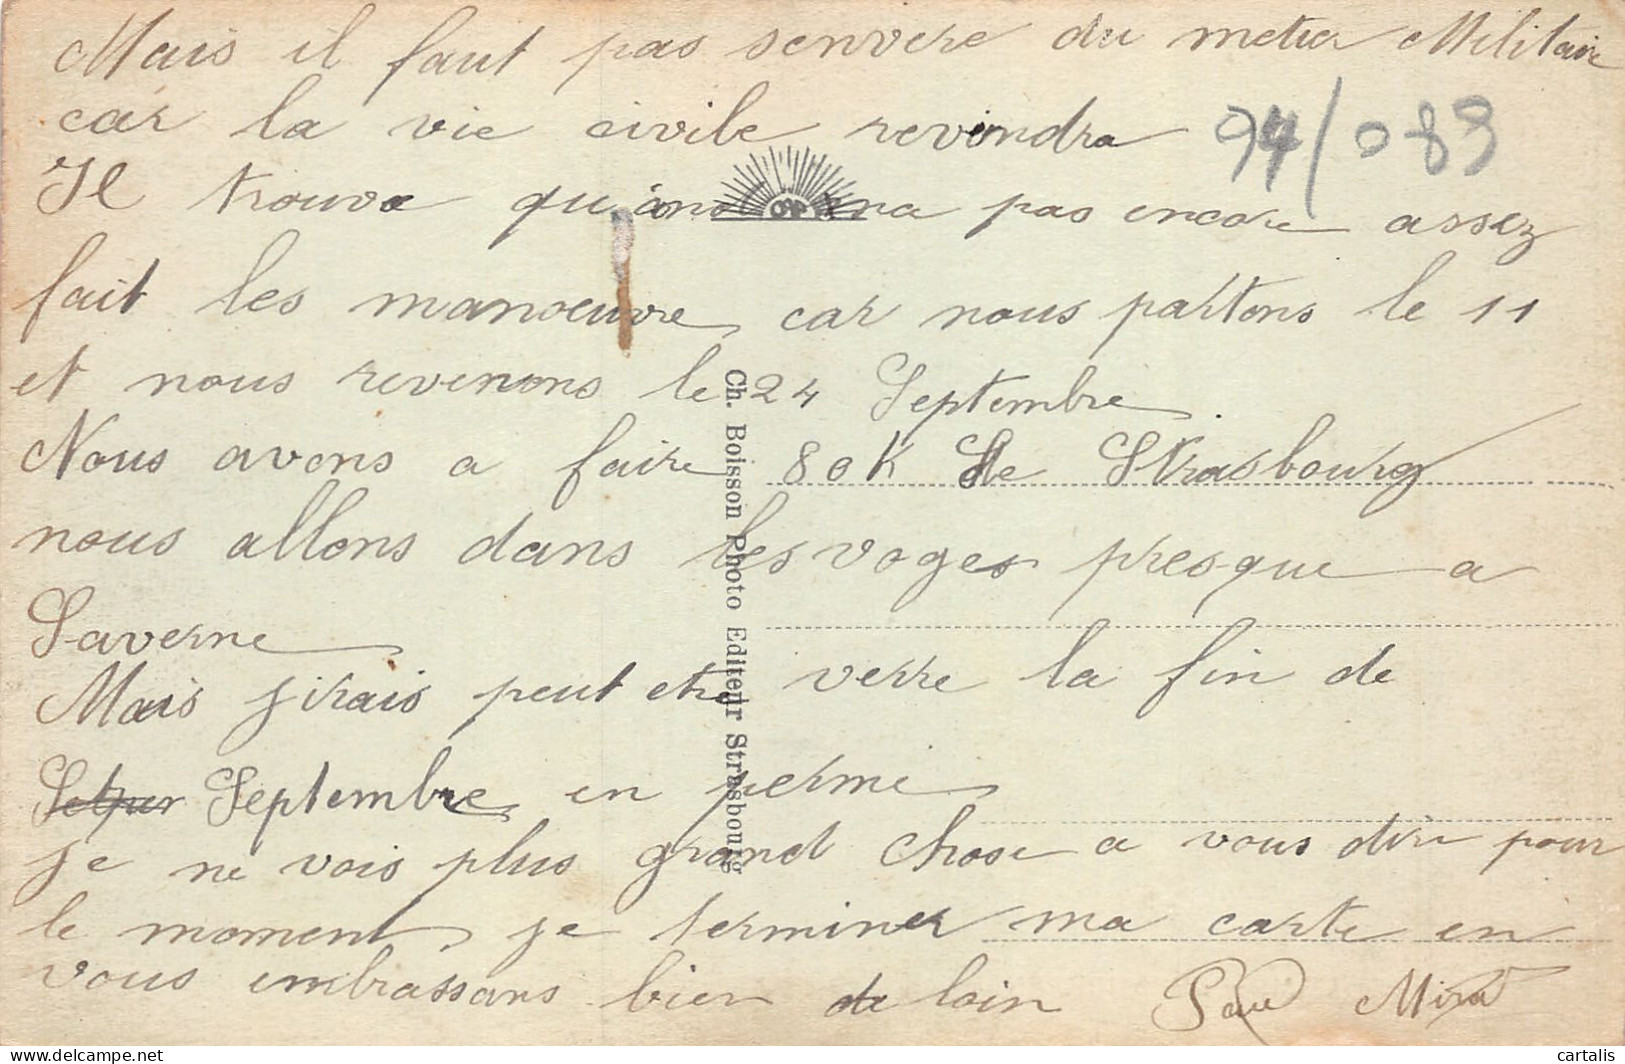 Mais il faut pas senvere du metier Militair
car la vie civile reviendra 94/089
Il trouve qu'ànd ona pas encore assez
fait les manoeuvre, car nous partons le 11
et nous revenons le 24 Septembre.
Nous avons a faire 80K de Strasbourg
nous allons dans les voges presque a
Saverne
Mais jirais peut etre verre la fin de
Setper Septembre en perme
je ne vois plus grand chose a vous dire pour
le moment, je terminer ma carte en
vous embrassans bien de loin Paul
Ch. Boisson Photo Editeur Strasbourg
cartalis